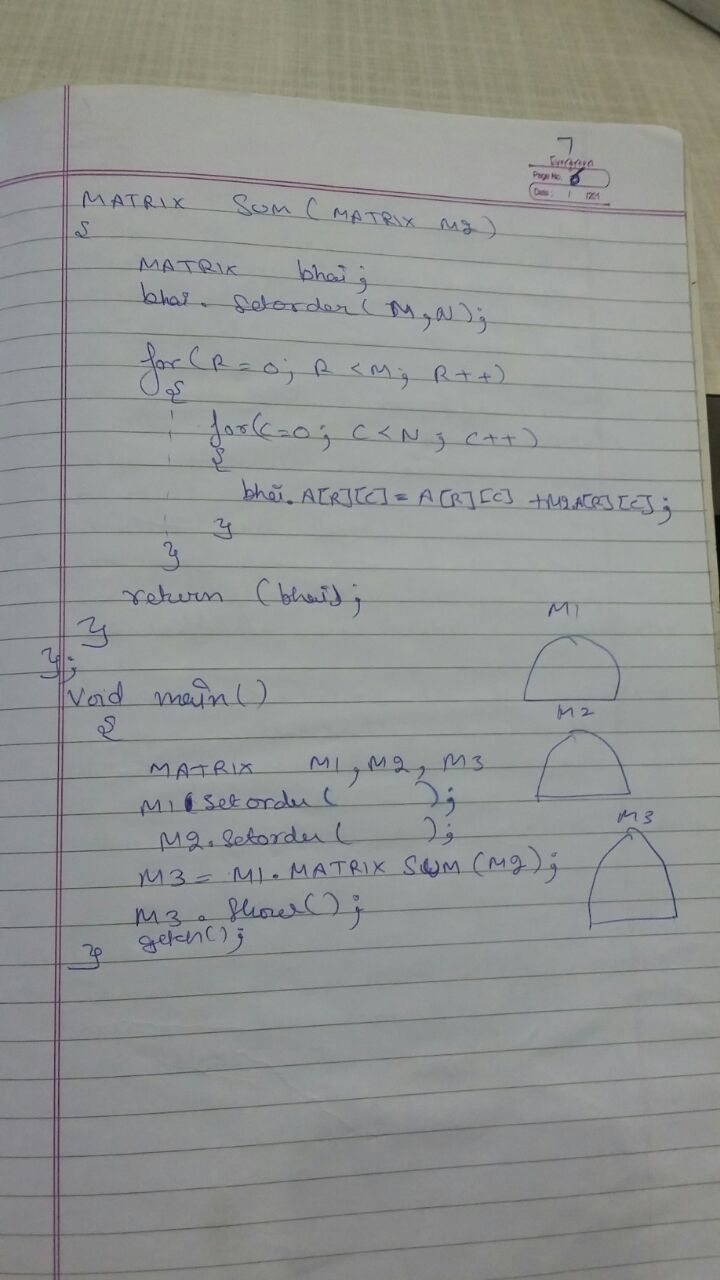 7
Evergreen
Page No. 6
Date: / /201
MATRIX SUM (MATRIX M2)
{
MATRIX bhai;
bhai. Setorder (M,N);
for(R=0; R<M; R++)
{
for(C=0; C<N; C++)
{
bhai.A[R][C]=A[R][C] +M2.A[R][C];
}
}
return (bhai);
}
};
Void main()
{
MATRIX M1, M2, M3
M1.Setorder( );
M2.Setorder( );
M3 = M1.MATRIX SUM (M2);
M3.Show();
getch();
}
M1
M2
M3